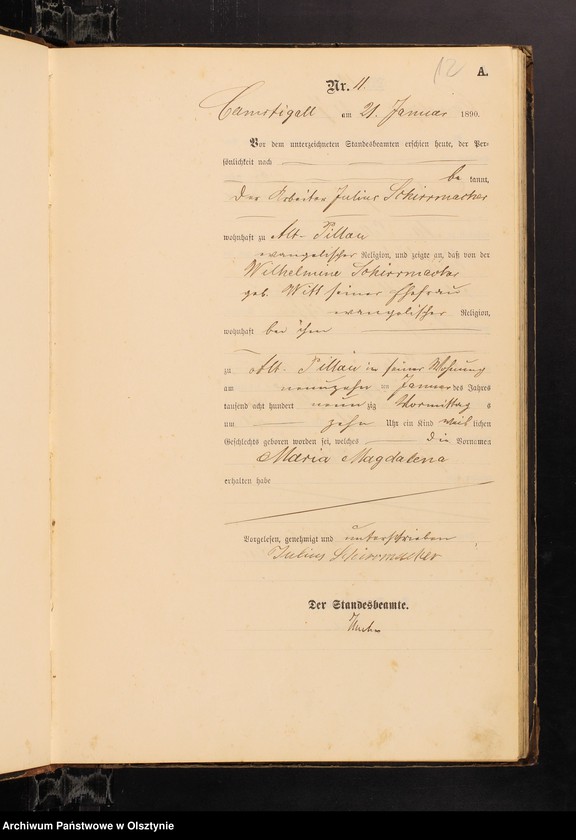 12
A.
Nr. 11.
Camstigall am 21. Januar 1890.
Vor dem unterzeichneten Standesbeamten erschien heute, der Per-
sönlichkeit nach
be kannt,
Der Arbeiter Julius Schirrmacher
wohnhaft zu Alt-Pillau
evangelischer Religion, und zeigte an, daß von der
Wilhelmine Schirrmacher
geb. Witt seiner Ehefrau
evangelischer Religion,
wohnhaft bei ihm
zu Alt-Pillau in seiner Wohnung
am neunzehn ten Januar des Jahres
tausend acht hundert neun zig Vormittag s
um zehn Uhr ein Kind weib lichen
Geschlechts geboren worden sei, welches die Vornamen
Maria Magdalena
erhalten habe
Vorgelesen, genehmigt und unterschrieben
Julius Schirrmacher
Der Standesbeamte.
Archiwum Państwowe w Olsztynie